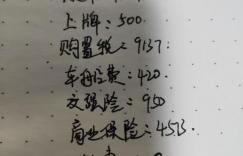 上牌:500
购置税:9137
车船费:420
交强险:950
商业保险:4513